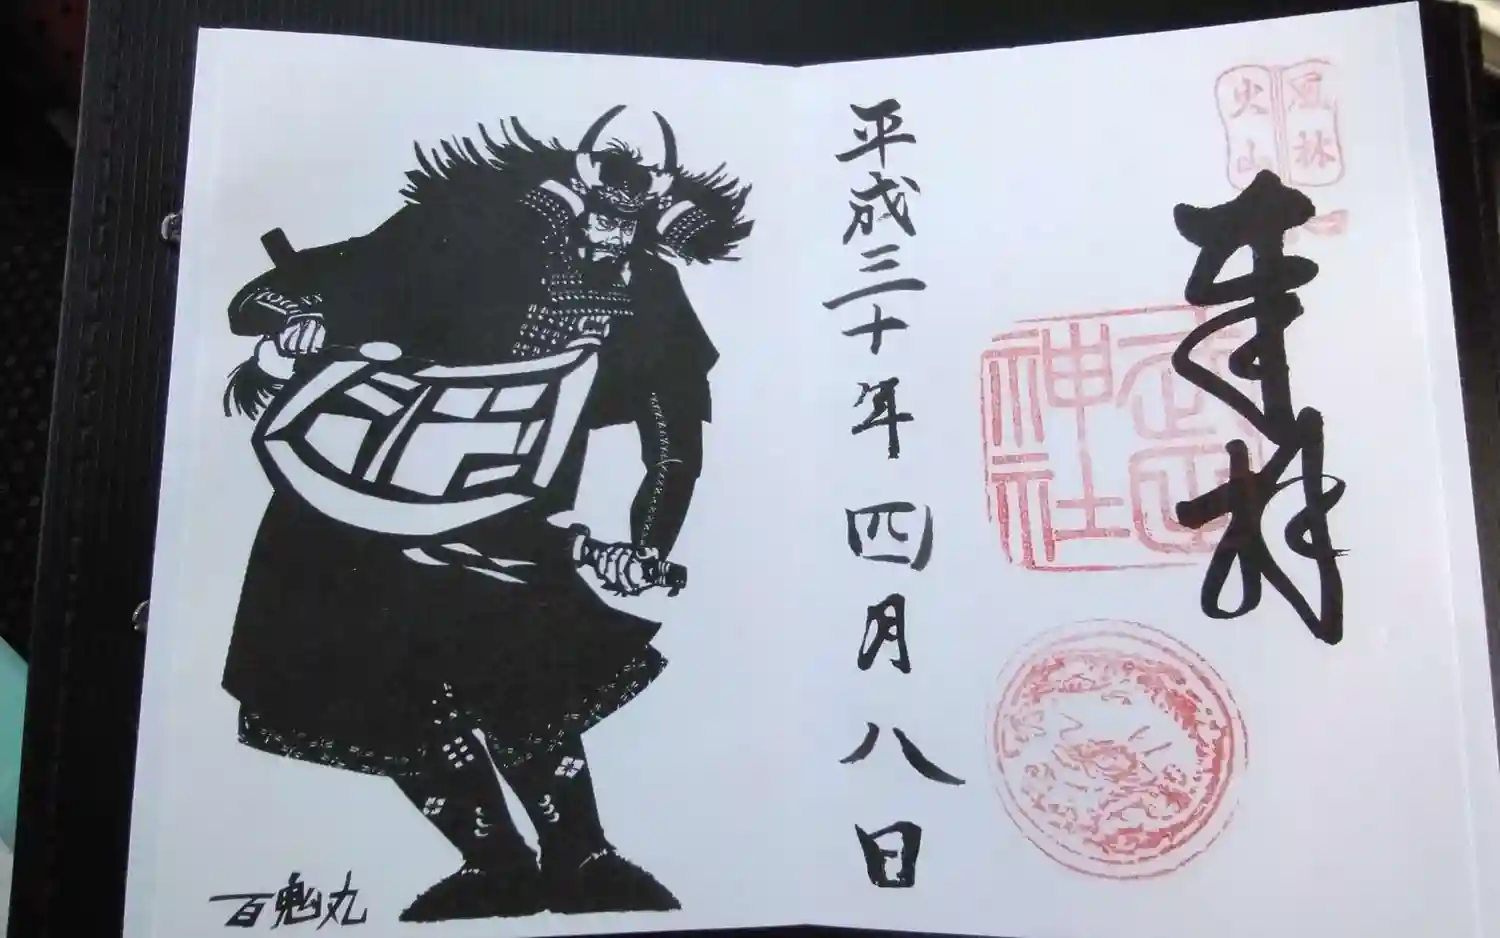 風林
火山
奉拝
武田
神社
平成三十年四月八日
百鬼丸